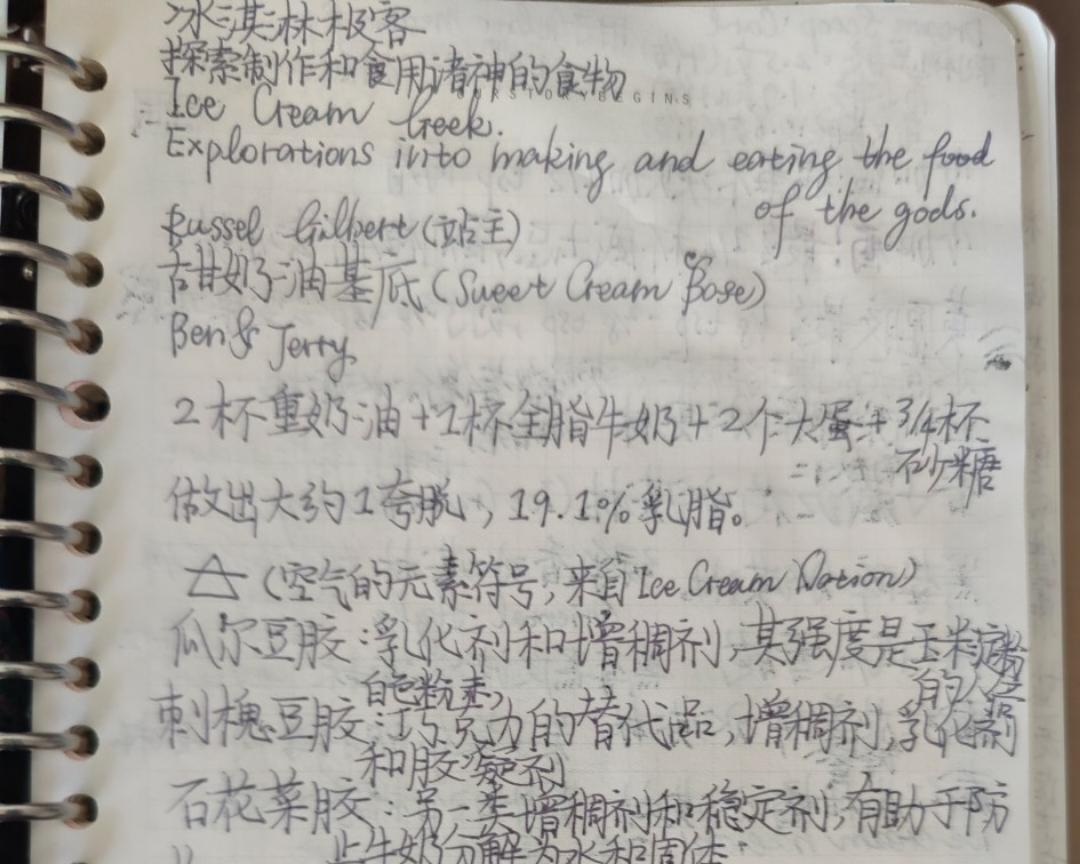 冰淇淋极客
探索制作和食用诸神的食物
OURSTORYBEGINS
Ice Cream Geek.
Explorations into making and eating the food
of the gods.
Russel Gilbert(站主)
古甘奶油基底(Sweet Cream Base)
Ben & Jerry
2杯重奶油+1杯全脂牛奶+2个大蛋+3/4杯
砂糖
做出大约1夸脱,19.1%乳脂。
△(空气的元素符号,来自Ice Cream Nation)
瓜尔豆胶:乳化剂和增稠剂,其强度是玉米淀粉
的八倍
白色粉末,
刺槐豆胶:巧克力的替代品,增稠剂,乳化剂
和胶凝剂
石花菜胶:另一类增稠剂和稳定剂,有助于防
止牛奶分解为水和固体;